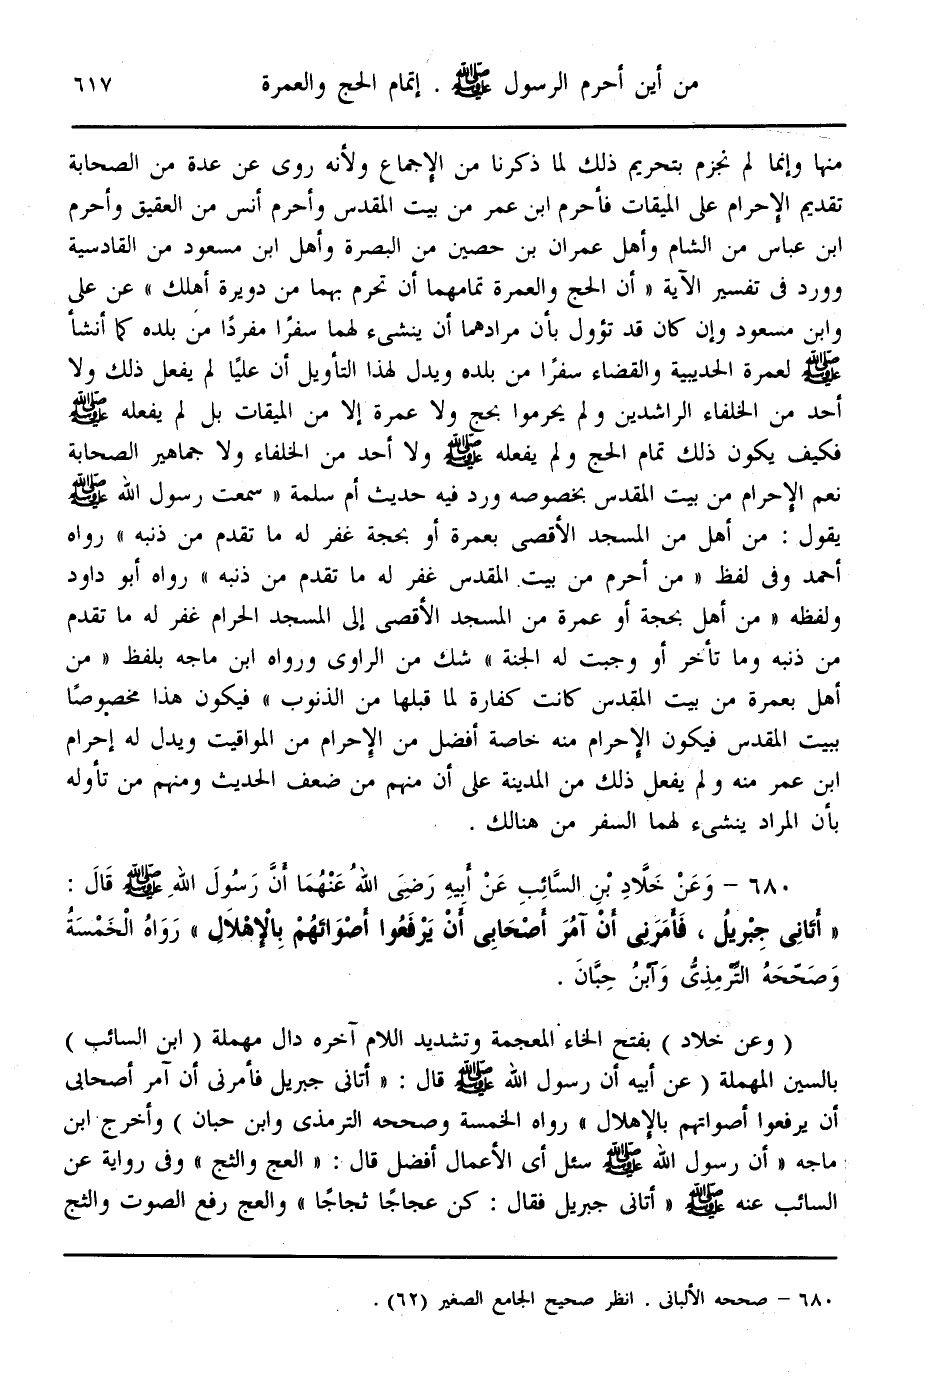 من أين أحرم الرسول ﷺ . إتمام الحج والعمرة ٦١٧
منها وإنما لم نجزم بتحريم ذلك لما ذكرنا من الإجماع ولأنه روى عن عدة من الصحابة
تقديم الإحرام على الميقات فأحرم ابن عمر من بيت المقدس وأحرم أنس من العقيق وأحرم
ابن عباس من الشام وأهل عمران بن حصين من البصرة وأهل ابن مسعود من القادسية
وورد فى تفسير الآية « أن الحج والعمرة تمامهما أن تحرم بهما من دويرة أهلك » عن على
وابن مسعود وإن كان قد تؤول بأن مرادهما أن ينشىء لهما سفرًا مفردًا من بلده كما أنشأ
ﷺ لعمرة الحديبية والقضاء سفرًا من بلده ويدل لهذا التأويل أن عليًا لم يفعل ذلك ولا
أحد من الخلفاء الراشدين ولم يحرموا بحج ولا عمرة إلا من الميقات بل لم يفعله ﷺ
فكيف يكون ذلك تمام الحج ولم يفعله ﷺ ولا أحد من الخلفاء ولا جماهير الصحابة
نعم الإحرام من بيت المقدس بخصوصه ورد فيه حديث أم سلمة « سمعت رسول الله ﷺ
يقول : من أهل من المسجد الأقصى بعمرة أو بحجة غفر له ما تقدم من ذنبه » رواه
أحمد وفى لفظ « من أحرم من بيت المقدس غفر له ما تقدم من ذنبه » رواه أبو داود
ولفظه « من أهل بحجة أو عمرة من المسجد الأقصى إلى المسجد الحرام غفر له ما تقدم
من ذنبه وما تأخر أو وجبت له الجنة » شك من الراوى ورواه ابن ماجه بلفظ « من
أهل بعمرة من بيت المقدس كانت كفارة لما قبلها من الذنوب » فيكون هذا مخصوصًا
ببيت المقدس فيكون الإحرام منه خاصة أفضل من الإحرام من المواقيت ويدل له إحرام
ابن عمر منه ولم يفعل ذلك من المدينة على أن منهم من ضعف الحديث ومنهم من تأوله
بأن المراد ينشىء لهما السفر من هنالك .
٦٨٠ – وَعَنْ خَلَّادِ بْنِ السَّائِبِ عَنْ أَبِيهِ رَضِىَ اللهُ عَنْهُمَا أَنَّ رَسُولَ اللهِ ﷺ قَالَ :
« أَتَانِى جِبْرِيلُ ، فَأَمَرَنِى أَنْ آمُرَ أَصْحَابِى أَنْ يَرْفَعُوا أَصْوَاتَهُمْ بِالْإِهْلَالِ » رَوَاهُ الْخَمْسَةُ
وَصَحَّحَهُ التِّرْمِذِىُّ وَآبْنُ حِبَّانَ .
( وعن خلاد ) بفتح الخاء المعجمة وتشديد اللام آخره دال مهملة ( ابن السائب )
بالسين المهملة ( عن أبيه أن رسول الله ﷺ قال : « أتانى جبريل فأمرنى أن آمر أصحابى
أن يرفعوا أصواتهم بالإهلال » رواه الخمسة وصححه الترمذى وابن حبان ) وأخرج ابن
ماجه « أن رسول الله ﷺ سئل أى الأعمال أفضل قال : « العج والثج » وفى رواية عن
السائب عنه ﷺ « أتانى جبريل فقال : كن عجاجًا ثجاجًا » والعج رفع الصوت والثج
٦٨٠ – صححه الألبانى . انظر صحيح الجامع الصغير (٦٢) .